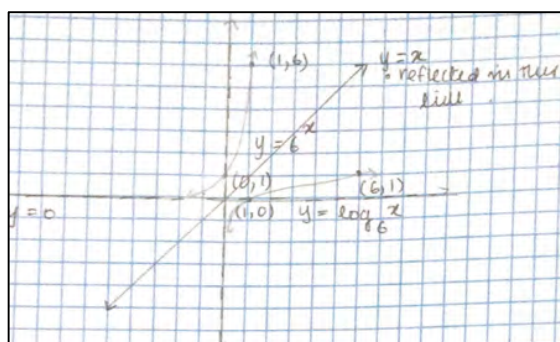 (1,6)
y=x
∴ reflected in this
line
y=6^x
(0,1)
(6,1)
y=0
(1,0)
y=log₆x